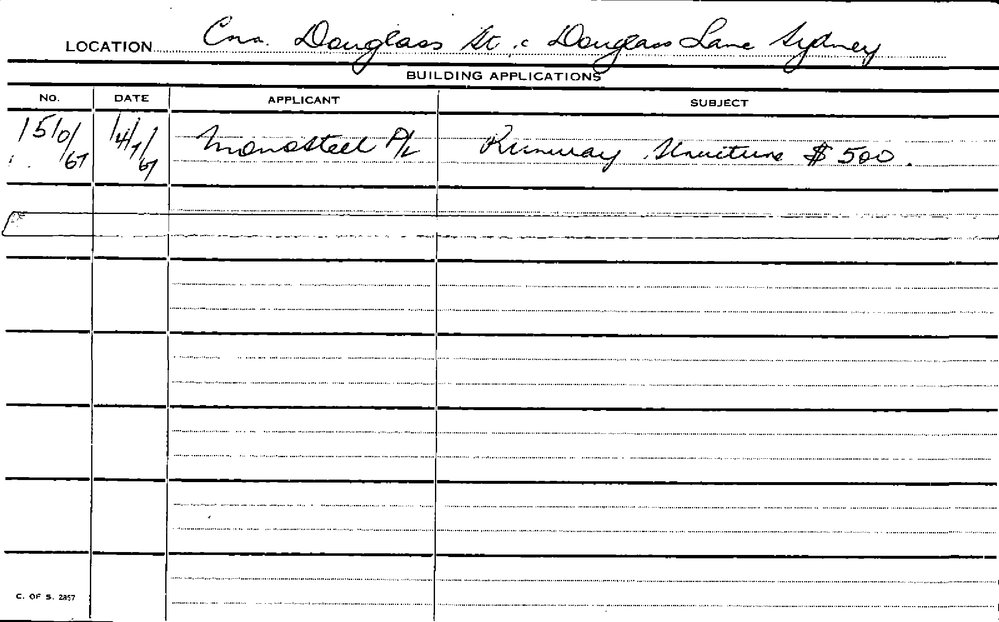 LOCATION Cnr. Douglass St. & Douglass Lane Sydney
BUILDING APPLICATIONS
No. DATE APPLICANT SUBJECT
1510/67 14/7/67 Monosteel P/L Runway Structure $500.
C. OF S. 2857